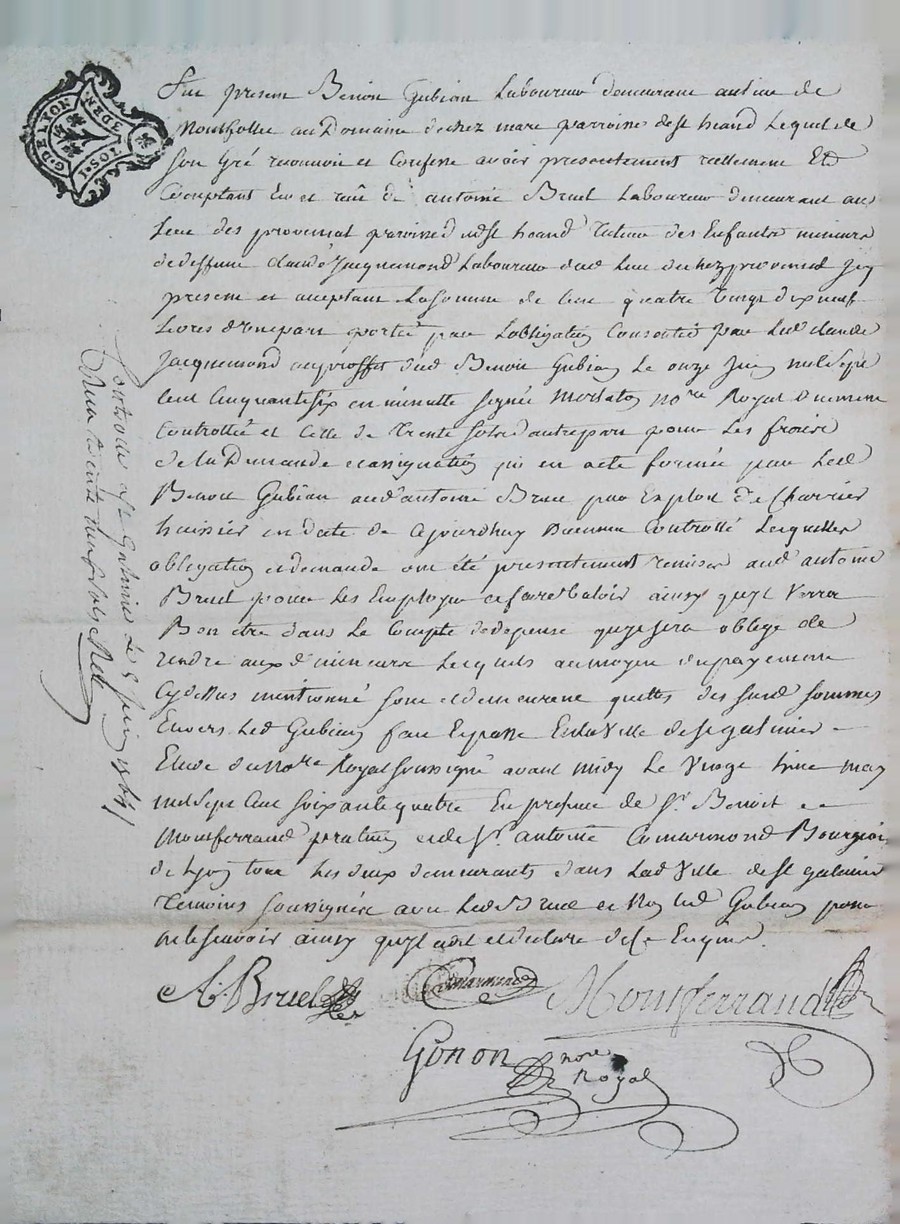 G. DE LYON
1. SOL 7 DEN
Fut present Benoit Gubian Laboureur demeurant au lieu de
Montfollet au Domaine de chez marc parroisse de st heand Lequel de
son gré reconnoit et Confesse avoir presentement reellement Et
Comptant Eu et reçû de antoine Bruel Laboureur demeurant au
Lieu des provenat parroisse dud st heand Tuteur des Enfants mineurs
de deffunt claude Jacquemond Laboureur dud Lieu de chez provenat Jcy
present et acceptant La somme de Cent quatre vingt dix neuf
Livres d'une part portée par L'obligation Consentie par Led claude
Jacquemond au proffit dud Benoit Gubian Le onze Juin mil sept
Cent Cinquante six en minutte signée nore Royal duement
Controllée et Celle de trente sols d'autre part pour Les frais
de la Demande et assignation en acte formée par Led
Benoit Gubian aud antoine Bruel par Exploit de Charrier
huissier en date de ajourdhuy Duement Controllé Lesquelles
obligation et demande ont été presentement remises aud antoine
Bruel pour Les Employer et faire Valoir ainsy quyl Verra
Bon etre dans Le Compte de depense quyl sera obligé de
rendre auxd mineurs Lesquels au moyen du payement
Cy dessus mentionné sont et demeurent quittes des susd sommes
Envers Led Gubian fait Et passé En la Ville de st galmier
Etude du nore Royal soussigné avant midy Le may
mil sept Cent soixante quatre En presence de sr. Benoit
Montferrand praticien et de sr. antoine Comarmond Bourgeois
de Lyon tous Les deux demeurants dans Lad Ville de st galmier
Temoins soussignés avec Led Bruel et Non Led Gubian pour
ne le scavoir ainsy quyl a dit et declaré de Ce Enquis.
A. Bruel
Comarmond
Montferrand
Gonon nore
Royal
Controllé a st Galmier Le 5 Juin 1764
Reçu trente neuf sols